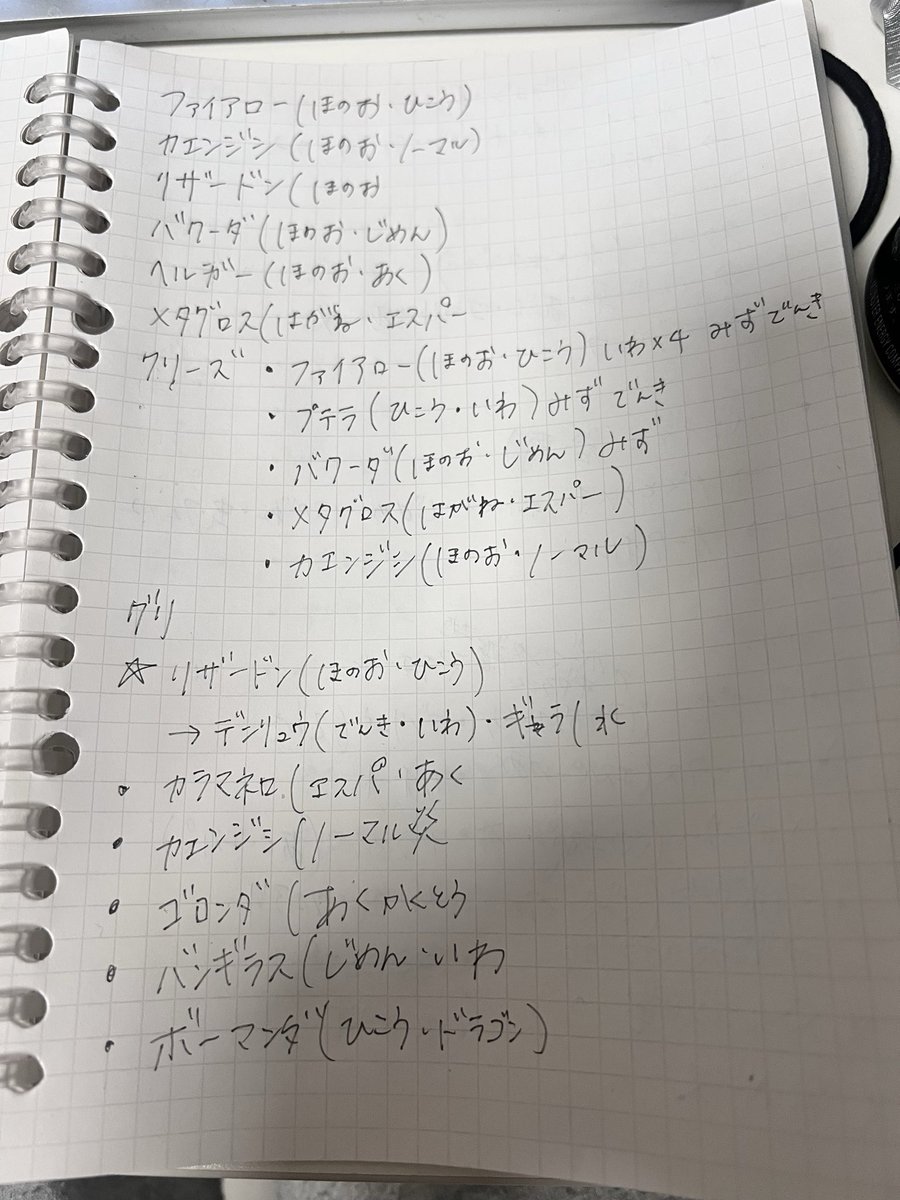 ファイアロー(ほのお・ひこう)
カエンジシ(ほのお・ノーマル)
リザードン(ほのお
バクーダ(ほのお・じめん)
ヘルガー(ほのお・あく)
メタグロス(はがね・エスパー
クリーズ ・ファイアロー(ほのお・ひこう)いわ×4 みずでんき
・プテラ(ひこう・いわ)みずでんき
・バクーダ(ほのお・じめん)みず
・メタグロス(はがね・エスパー)
・カエンジシ(ほのお・ノーマル)
グリ
☆リザードン(ほのお・ひこう)
→デンリュウ(でんき・いわ)・ギャラ(水
・カラマネロ(エスパ・あく
・カエンジシ(ノーマル炎
・ゴロンダ(あくかくとう
・バンギラス(じめん・いわ
・ボーマンダ(ひこう・ドラゴン)